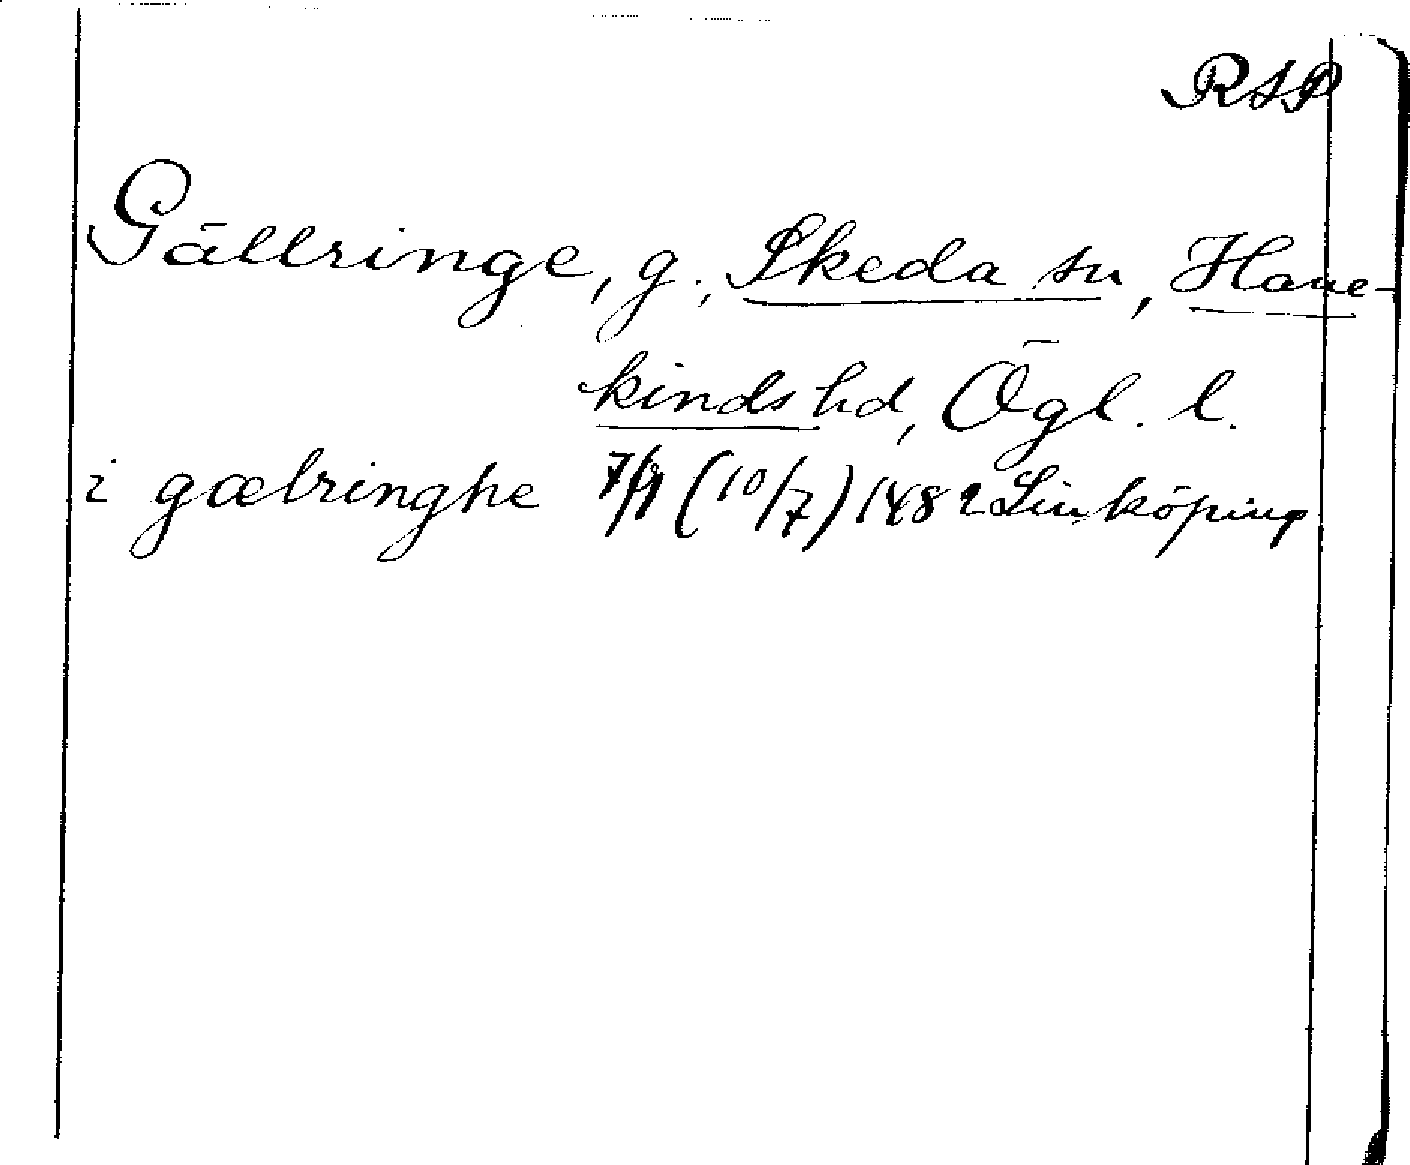 RAP
Gällringe, g., Skeda sn, Hane-
kinds hd, Ögl. l.
i gælringhe 7/9 (10/7) 1482 Linköping